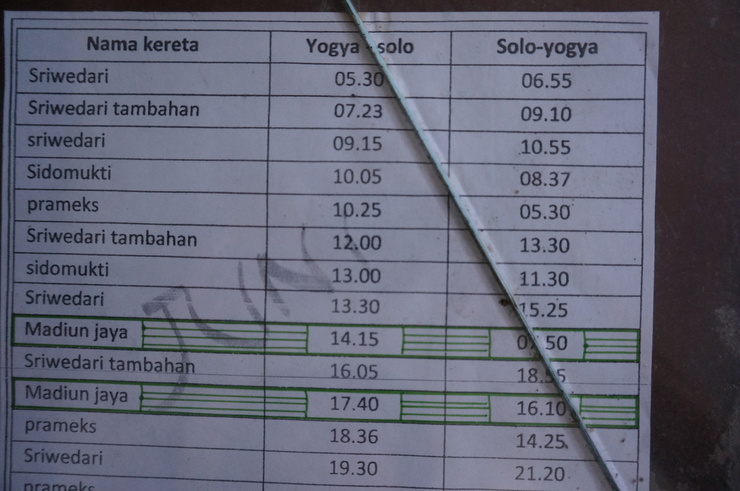 Nama kereta Yogya - solo Solo-yogya
Sriwedari 05.30 06.55
Sriwedari tambahan 07.23 09.10
sriwedari 09.15 10.55
Sidomukti 10.05 08.37
prameks 10.25 05.30
Sriwedari tambahan 12.00 13.30
sidomukti 13.00 11.30
Sriwedari 13.30 15.25
Madiun jaya 14.15
Sriwedari tambahan 16.05
Madiun jaya 17.40 16.10
prameks 18.36 14.25
Sriwedari 19.30 21.20
prameks
JUNI